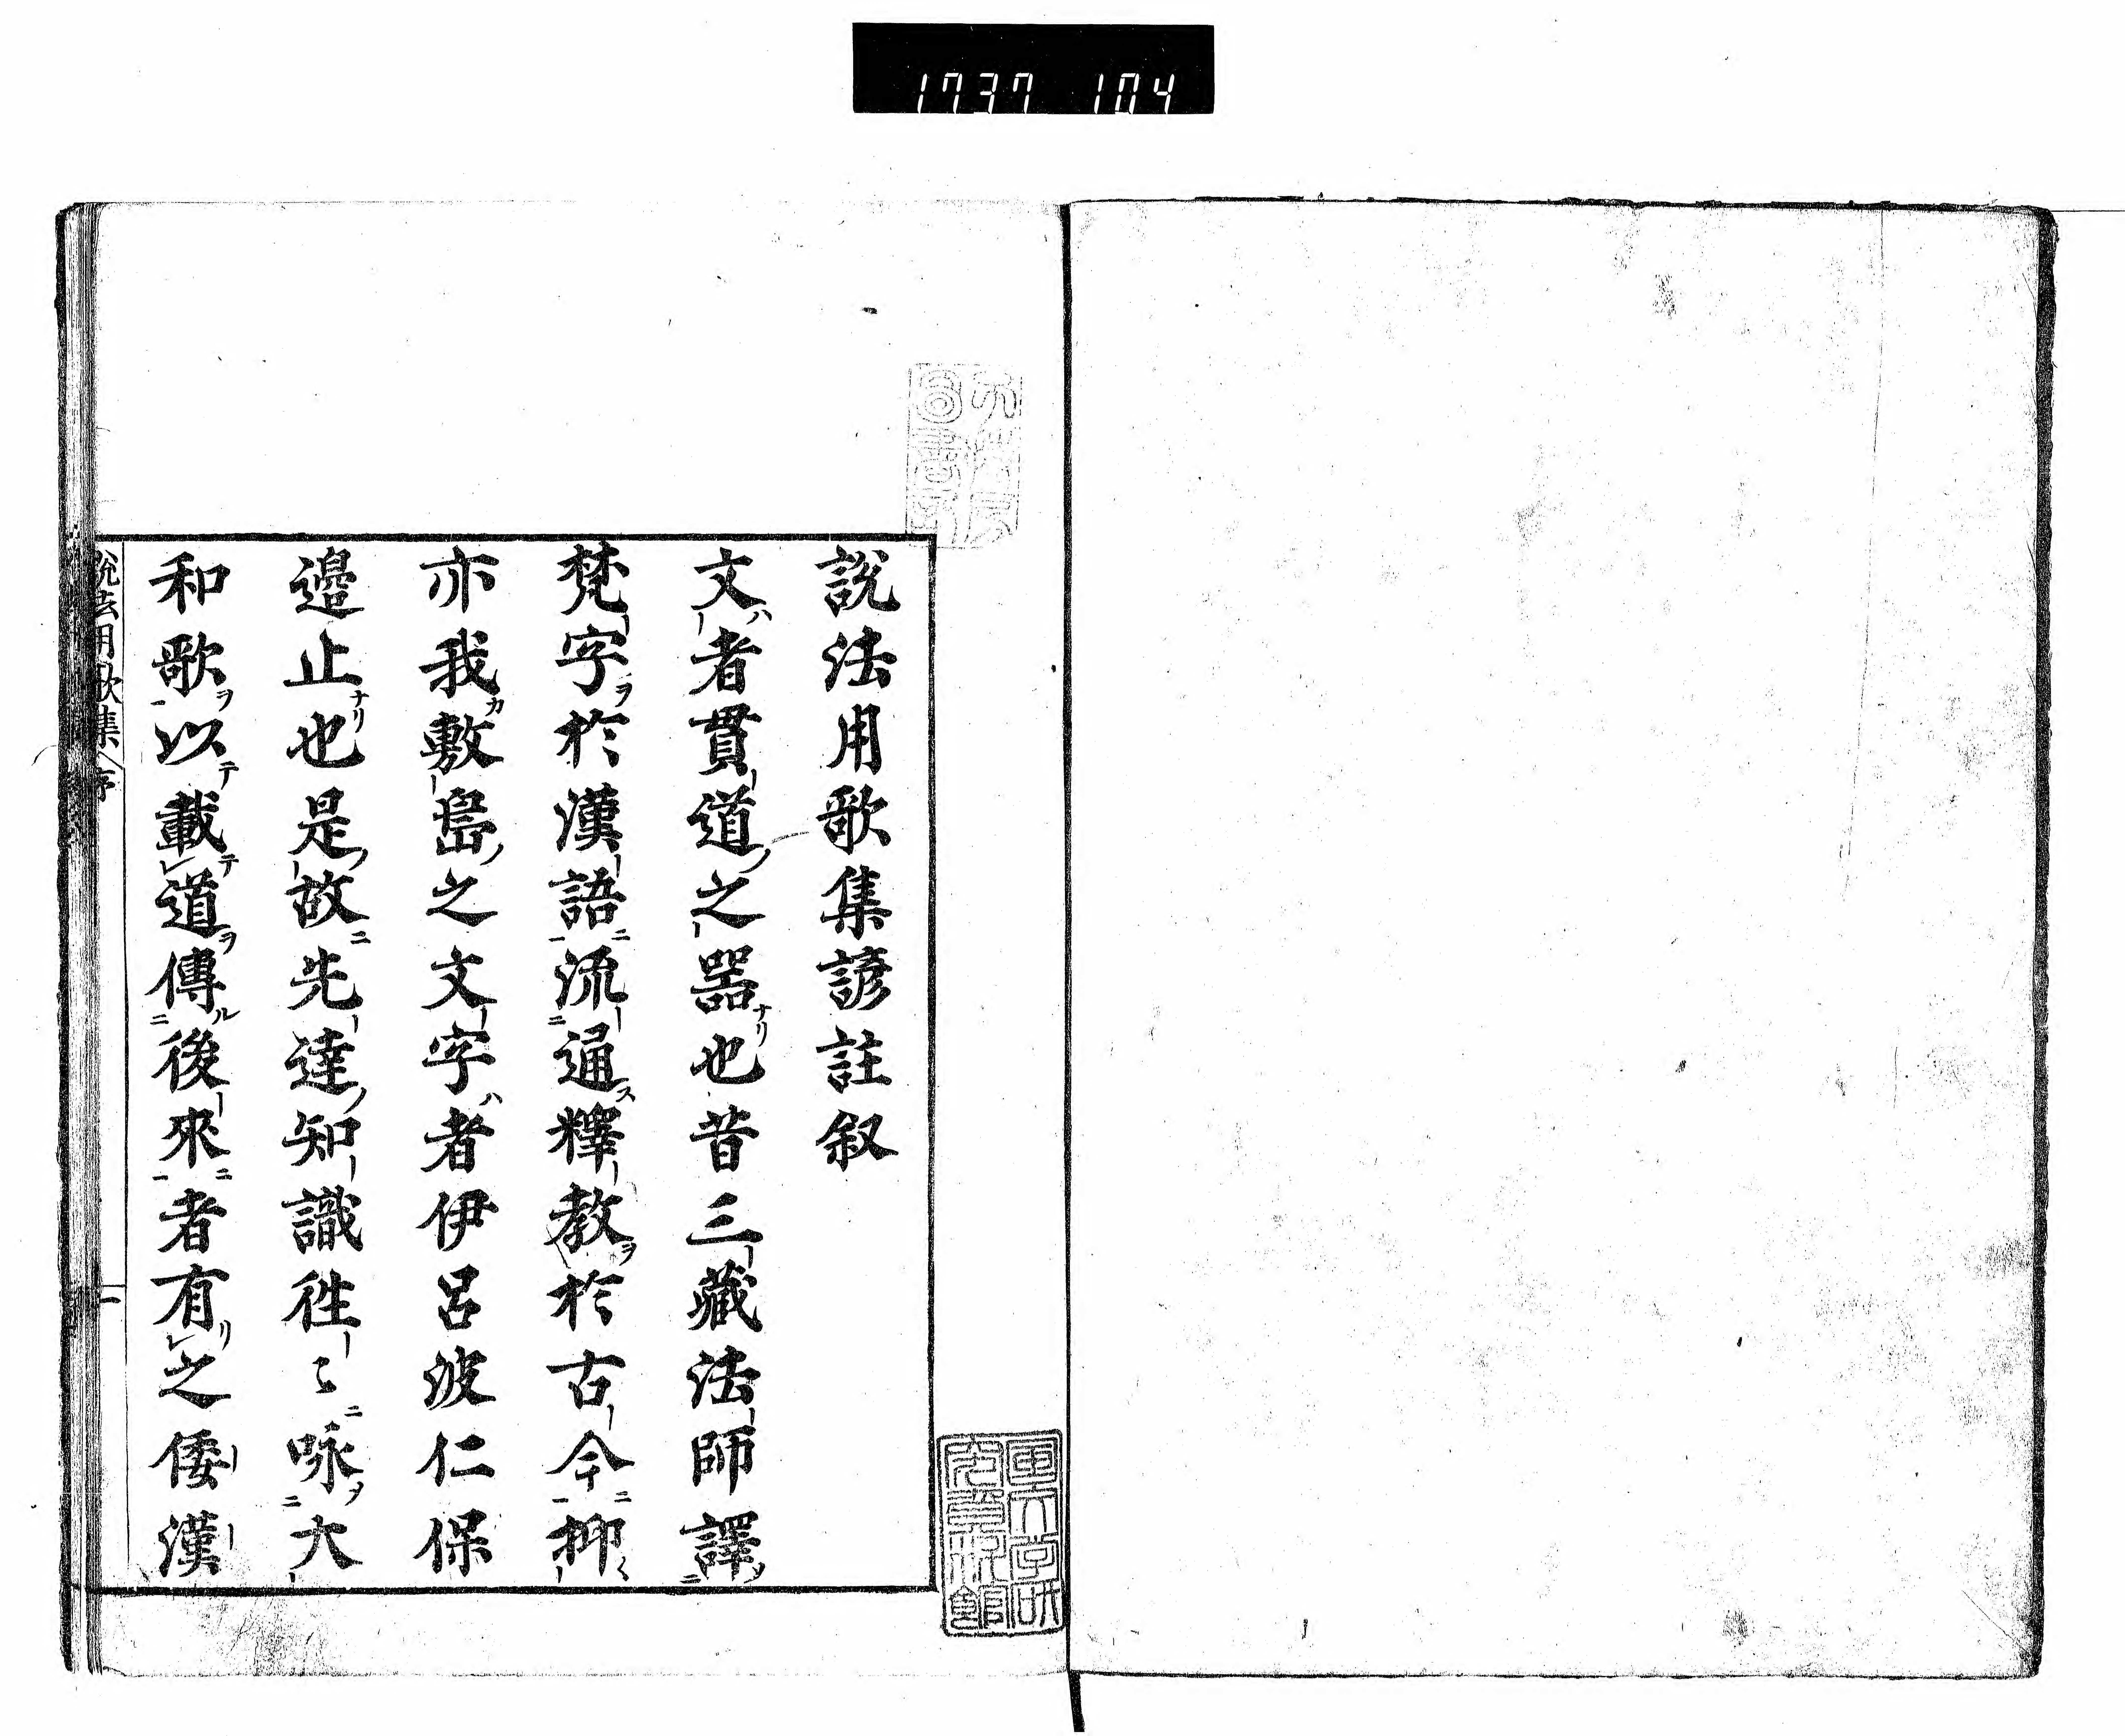 1737 104
説法用歌集諺註叙
文者貫道之器也昔三藏法師譯
梵字於漢語流通釋教於古今抑
亦我敷島之文字者伊呂波仁保
邊止也是故先達知識徃〻咏大
和歌以載道傳後來者有之倭漢
説法用歌集 序 一